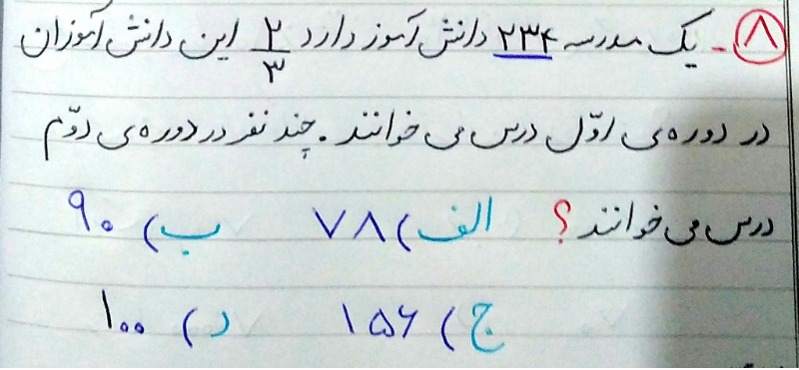 ۸- یک مدرسه ۲۳۴ دانش آموز دارد ۲/۳ این دانش آموزان
در دوره‌ی اوّل درس می خوانند. چند نفر در دوره‌ی دوّم
درس می خوانند؟ الف) ۷۸ ب) ۹۰
ج) ۱۵۶ د) ۱۰۰